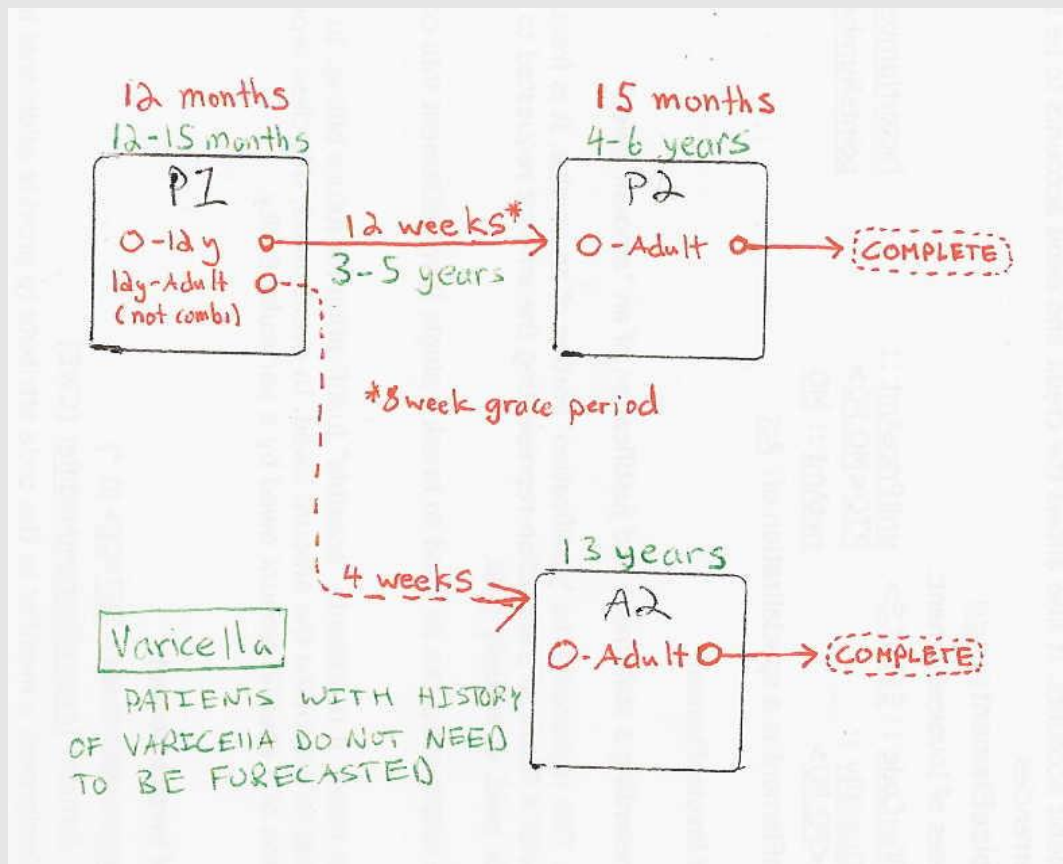 12 months
12-15 months
P1
0-12y
12y-Adult
(not combi)
12 weeks*
3-5 years
15 months
4-6 years
P2
0-Adult
COMPLETE
*8 week grace period
4 weeks
13 years
A2
0-Adult
COMPLETE
Varicella
PATIENTS WITH HISTORY
OF VARICEllA DO NOT NEED
TO BE FURECASTED